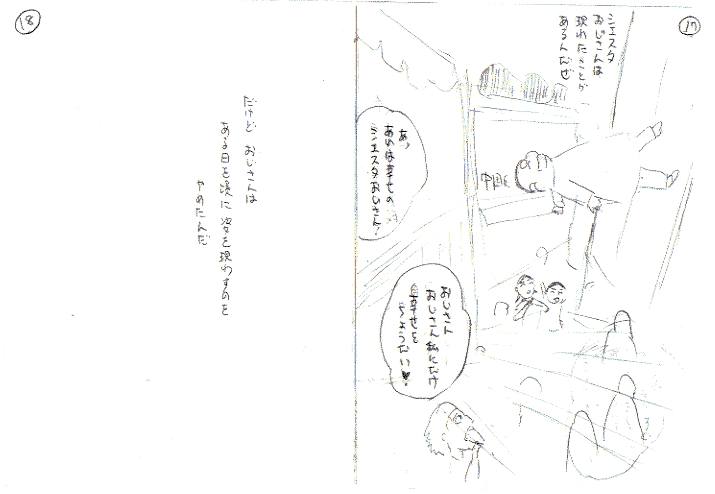 17
シエスタ
おじさんは
現れたことが
あるんだぜ
あっ
あれは幸せの
シエスタおじさん!
おじさん
おじさん私にだけ
幸せを
ちょうだい♥
18
だけど おじさんは
ある日を境に姿を現わすのを
やめたんだ